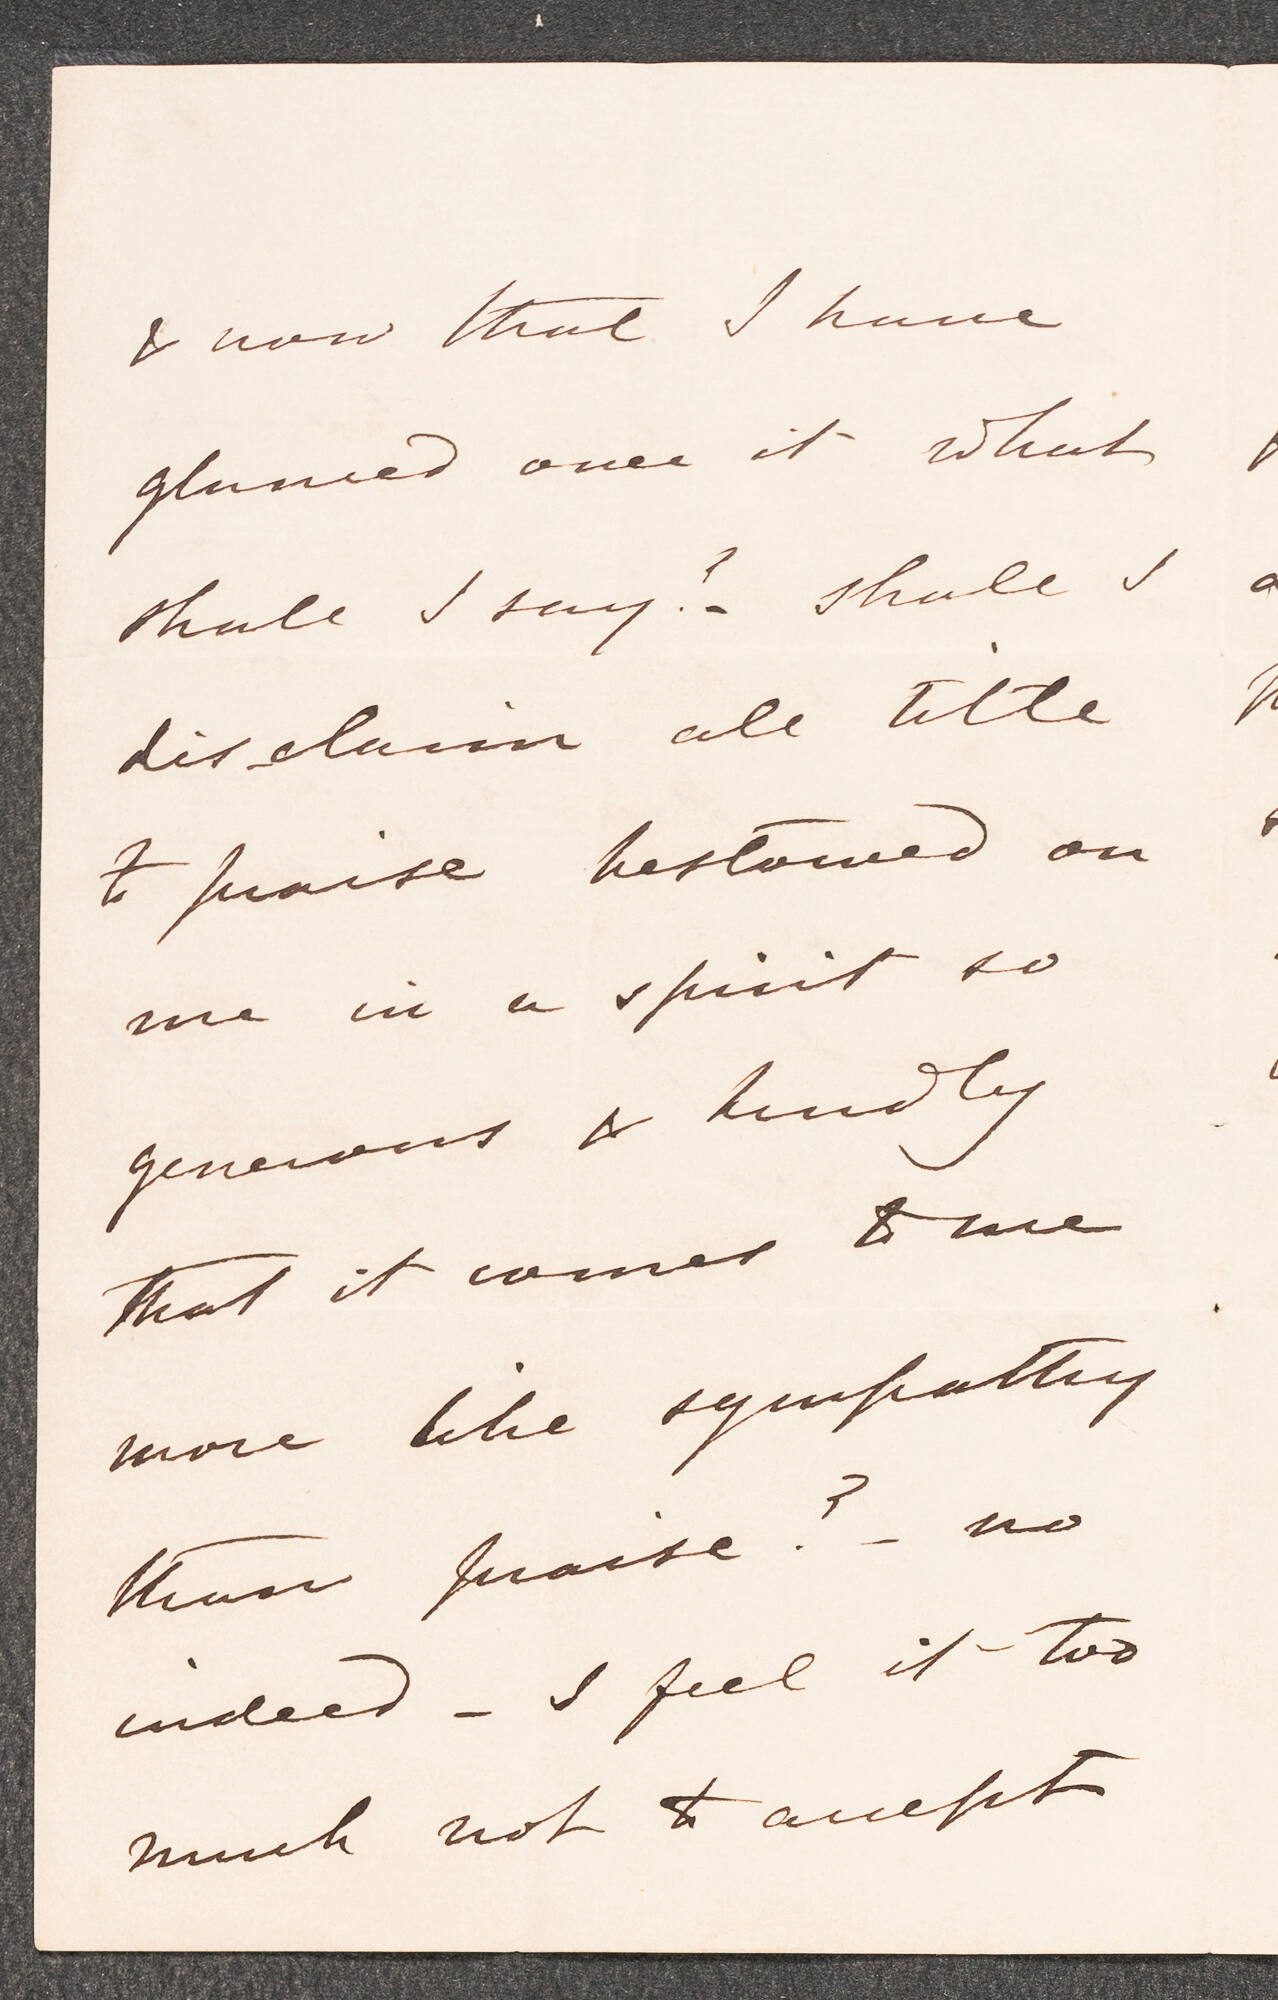 & now that I have
glanced over it what
shall I say? - shall I
disclaim all title
to praise bestowed on
me in a spirit so
generous & kindly
that it comes to me
more like sympathy
than praise? - no
indeed - I feel it too
much not to accept